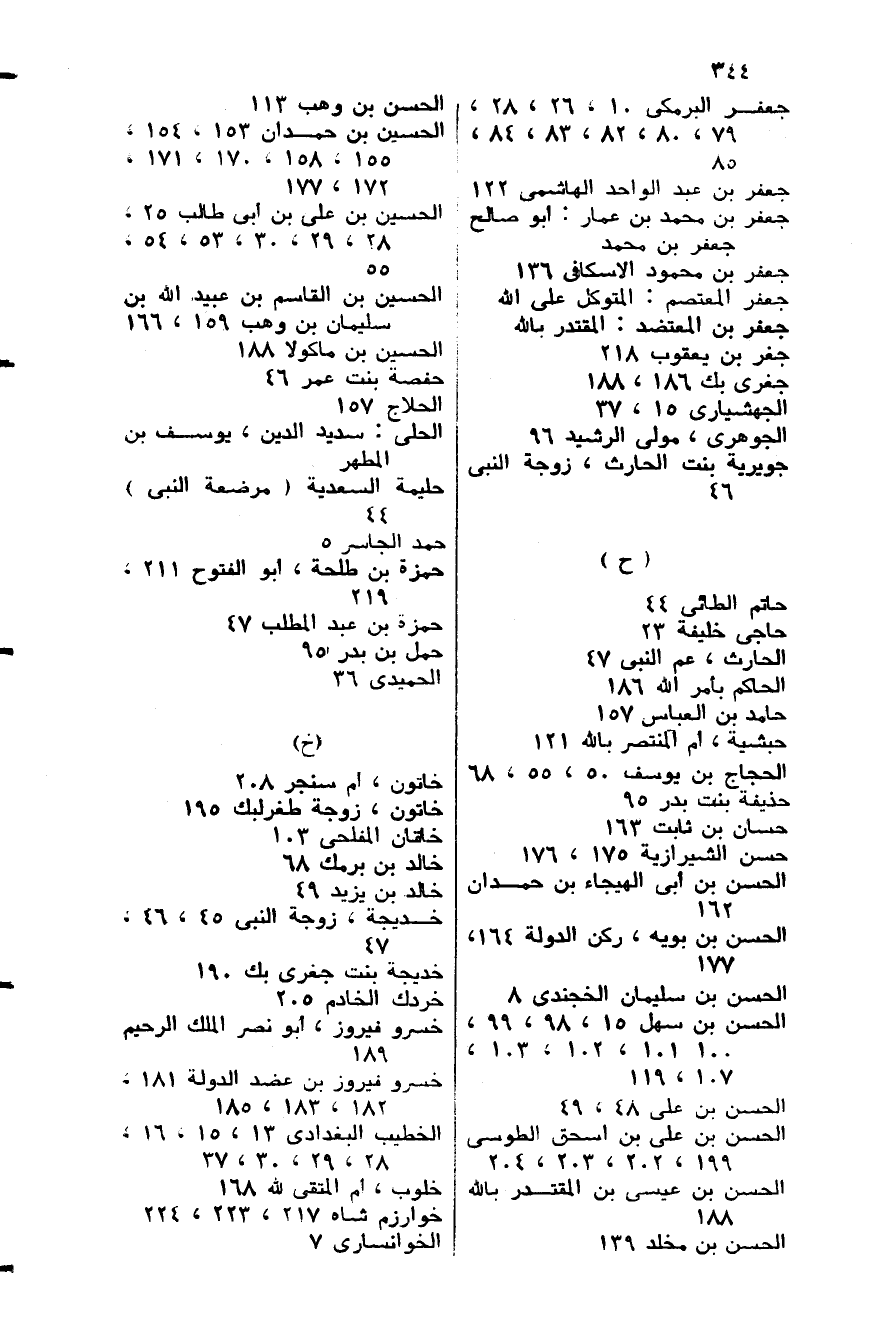 ٣٤٤
جعفــر البرمكى ١٠ ، ٢٦ ، ٢٨ ،
٧٩ ، ٨٠ ، ٨٢ ، ٨٣ ، ٨٤ ،
٨٥
جعفر بن عبد الواحد الهاشمى ١٢٢
جعفر بن محمد بن عمار : أبو صالح
جعفر بن محمد
جعفر بن محمود الاسكافى ١٣٦
جعفر المعتصم : المتوكل على الله
جعفر بن المعتضد : المقتدر بالله
جفر بن يعقوب ٢١٨
جغرى بك ١٨٦ ، ١٨٨
الجهشيارى ١٥ ، ٣٧
الجوهرى ، مولى الرشيد ٩٦
جويرية بنت الحارث ، زوجة النبى
٤٦
( ح )
حاتم الطائى ٤٤
حاجى خليفة ٢٣
الحارث ، عم النبى ٤٧
الحاكم بأمر الله ١٨٦
حامد بن العباس ١٥٧
حبشية ، أم المنتصر بالله ١٢١
الحجاج بن يوسف ٥٠ ، ٥٥ ، ٦٨
حذيفة بنت بدر ٩٥
حسان بن ثابت ١٦٣
حسن الشيرازية ١٧٥ ، ١٧٦
الحسن بن أبى الهيجاء بن حمــدان
١٦٢
الحسن بن بويه ، ركن الدولة ١٦٤،
١٧٧
الحسن بن سليمان الخجندى ٨
الحسن بن سهل ١٥ ، ٩٨ ، ٩٩ ،
١٠٠ ١٠١ ، ١٠٢ ، ١٠٣ ،
١٠٧ ، ١١٩
الحسن بن على ٤٨ ، ٤٩
الحسن بن على بن اسحق الطوسى
١٩٩ ، ٢٠٢ ، ٢٠٣ ، ٢٠٤
الحسن بن عيسى بن المقتــدر بالله
١٨٨
الحسن بن مخلد ١٣٩
الحسن بن وهب ١١٣
الحسين بن حمــدان ١٥٣ ، ١٥٤ ،
١٥٥ ، ١٥٨ ، ١٧٠ ، ١٧١ ،
١٧٢ ، ١٧٧
الحسين بن على بن أبى طالب ٢٥ ،
٢٨ ، ٢٩ ، ٣٠ ، ٥٣ ، ٥٤ ،
٥٥
الحسين بن القاسم بن عبيد الله بن
سليمان بن وهب ١٥٩ ، ١٦٦
الحسين بن ماكولا ١٨٨
حفصة بنت عمر ٤٦
الحلاج ١٥٧
الحلى : سديد الدين ، يوســف بن
المطهر
حليمة السعدية ( مرضعة النبى )
٤٤
حمد الجاسر ٥
حمزة بن طلحة ، أبو الفتوح ٢١١ ،
٢١٩
حمزة بن عبد المطلب ٤٧
حمل بن بدر ٩٥
الحميدى ٣٦
(خ)
خاتون ، أم سنجر ٢٠٨
خاتون ، زوجة طغرلبك ١٩٥
خاقان المفلحى ١٠٣
خالد بن برمك ٦٨
خالد بن يزيد ٤٩
خــديجة ، زوجة النبى ٤٥ ، ٤٦ ،
٤٧
خديجة بنت جغرى بك ١٩٠
خردك الخادم ٢٠٥
خسرو فيروز ، أبو نصر الملك الرحيم
١٨٩
خسرو فيروز بن عضد الدولة ١٨١ ،
١٨٢ ، ١٨٣ ، ١٨٥
الخطيب البغدادى ١٣ ، ١٥ ، ١٦ ،
٢٨ ، ٢٩ ، ٣٠ ، ٣٧
خلوب ، أم المتقى لله ١٦٨
خوارزم شاه ٢١٧ ، ٢٢٣ ، ٢٢٤
الخوانسارى ٧